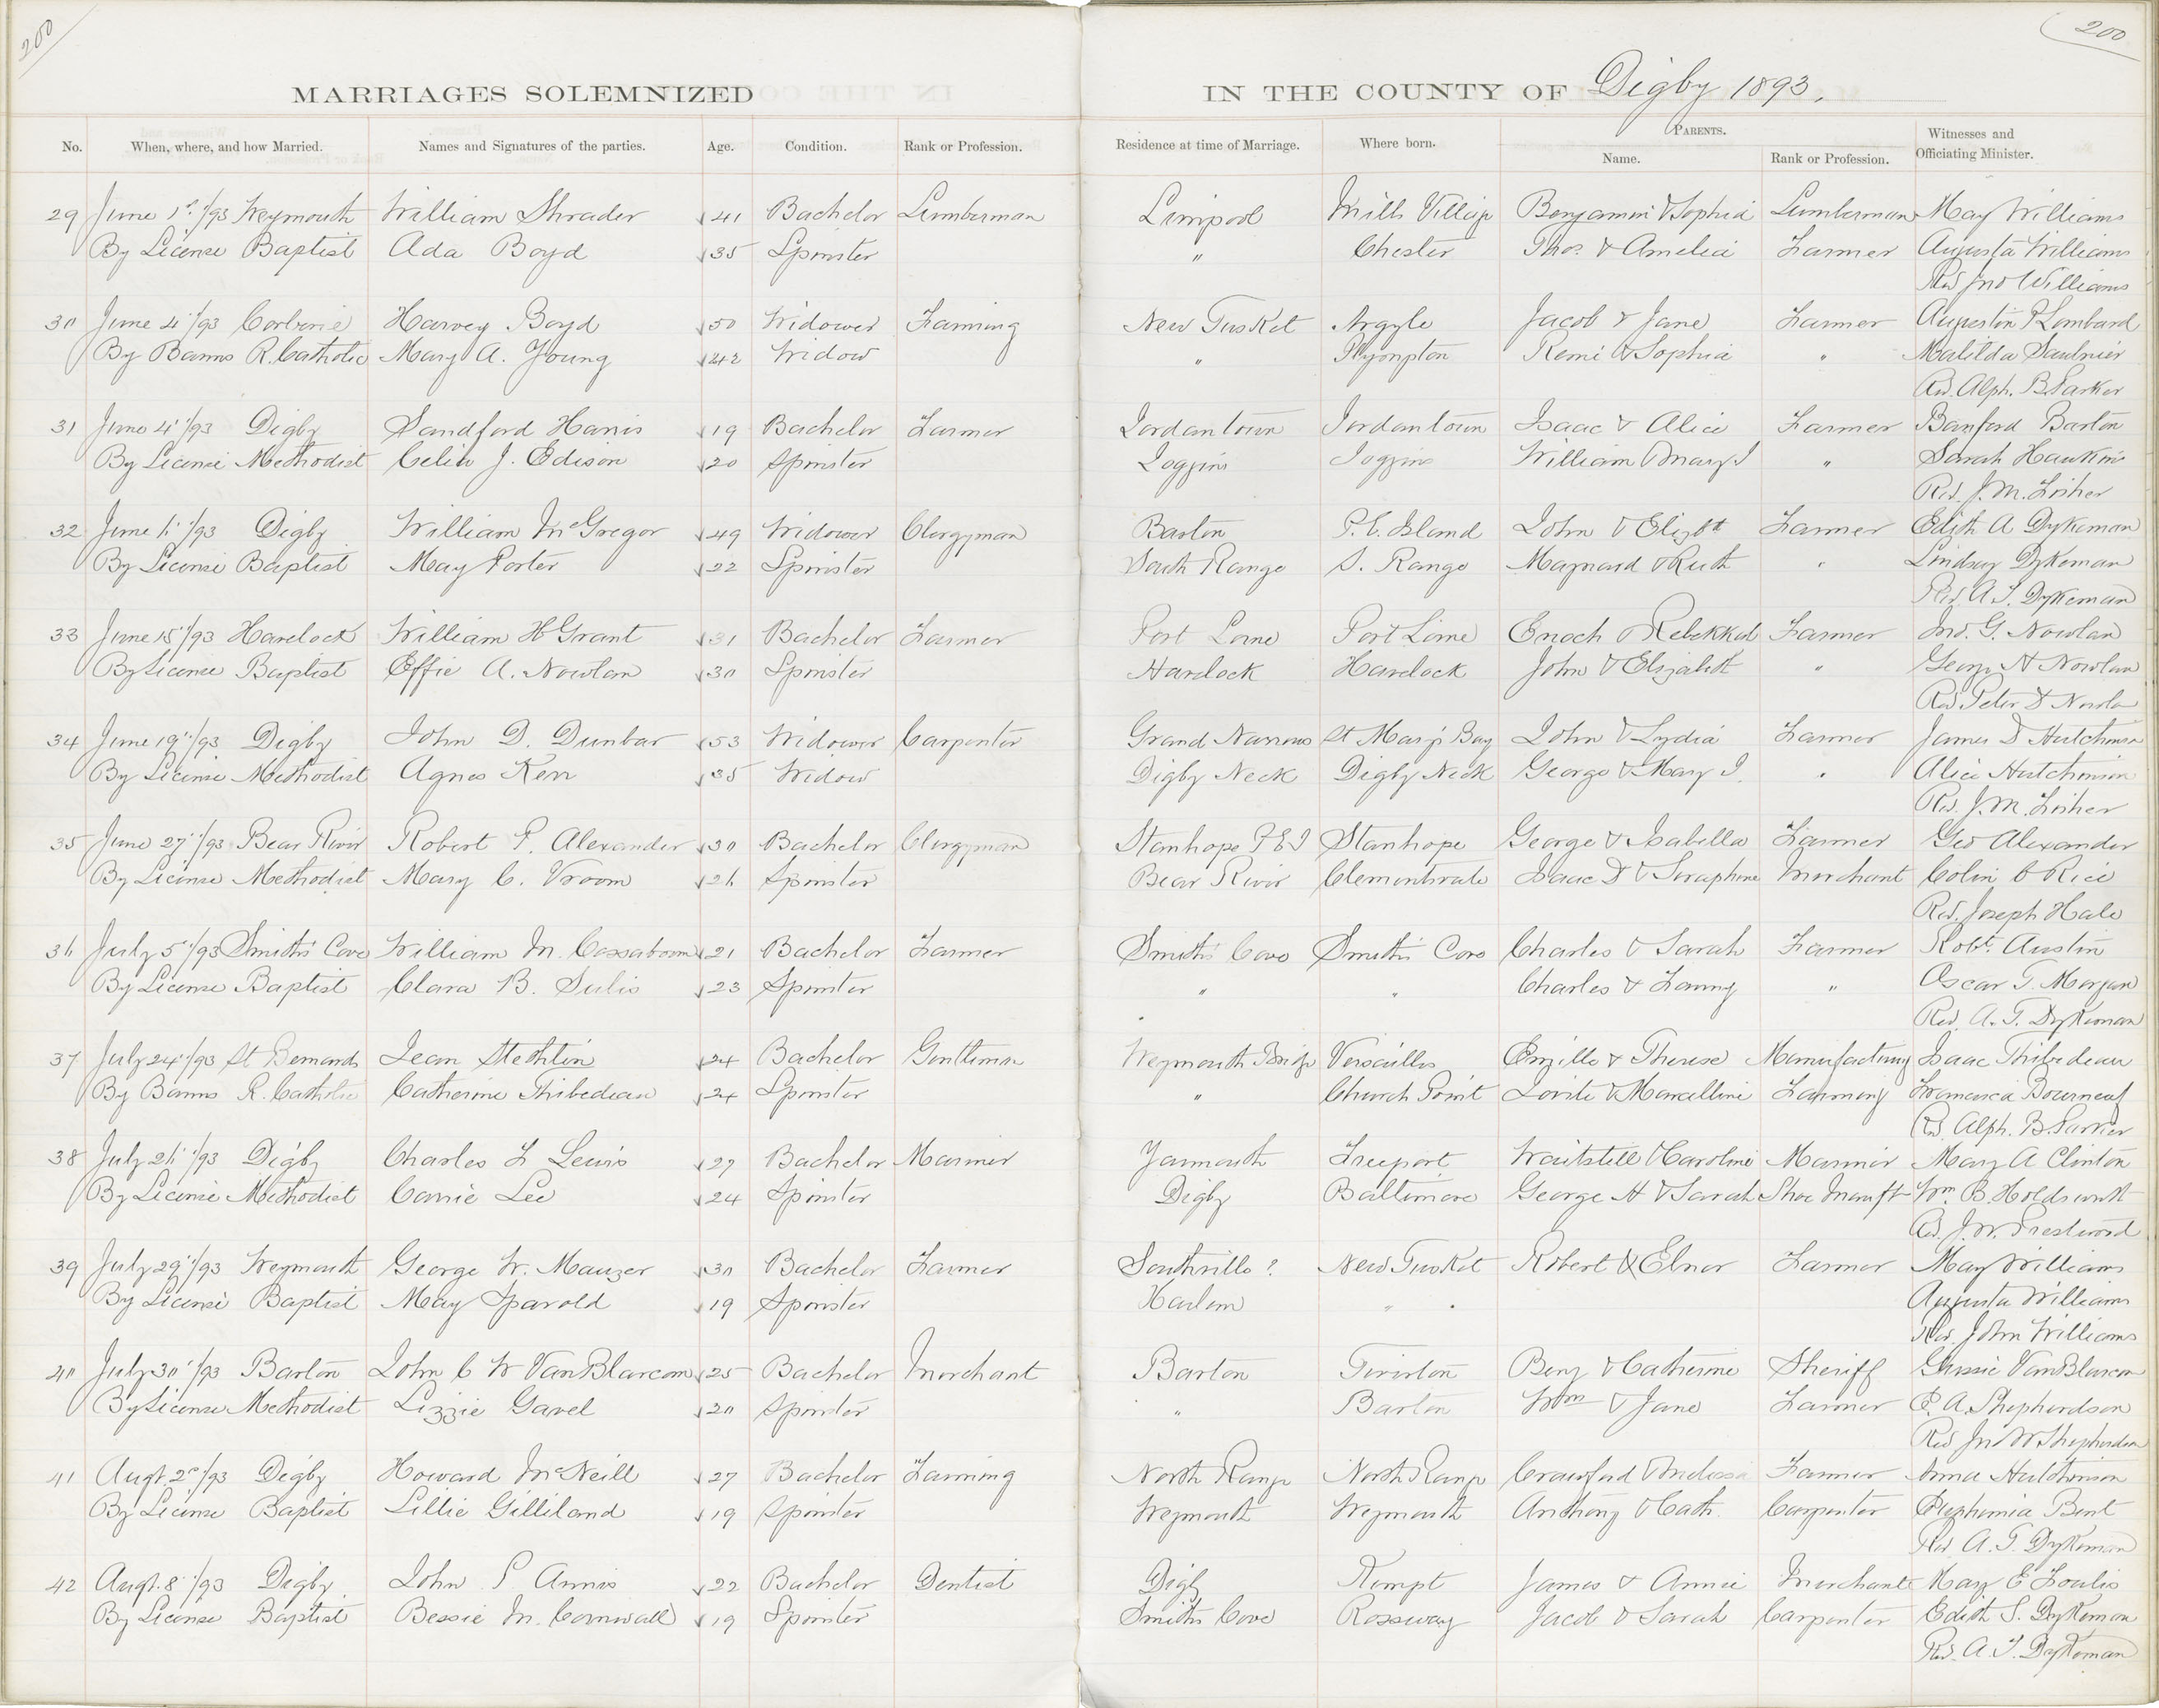 200
200
MARRIAGES SOLEMNIZED IN THE COUNTY OF Digby 1893.
No. When, where, and how Married. Names and Signatures of the parties. Age. Condition. Rank or Profession. Residence at time of Marriage. Where born. PARENTS. Name. Rank or Profession. Witnesses and Officiating Minister.
29 June 1st/93 Weymouth William Shrader 41 Bachelor Lumberman Liverpool Mills Village Benjamin & Sophia Lumberman May Williams
By License Baptist Ada Boyd 35 Spinster " Chester Thos. & Amelia Farmer Augusta Williams
Rev Jno Williams
30 June 4/93 Corberrie Harvey Boyd 50 Widower Farming New Tusket Argyle Jacob & Jane Farmer P Lombard
By Banns R. Catholic Mary A. Young 42 Widow " Plympton Remi & Sophia " Matilda Saulnier
Rev. Alph. B. Parker
31 June 4/93 Digby Sandford Harris 19 Bachelor Farmer Jordantown Jordantown Isaac & Alice Farmer Banford Barton
By License Methodist Celia J. Edison 20 Spinster Joggins Joggins William & Mary J " Sarah Hawkins
Rev. J. M. Fisher
32 June 6/93 Digby William McGregor 49 Widower Clergyman Barton P. E. Island John & Elizbt Farmer Edith A Dykeman
By License Baptist May Porter 22 Spinster South Range S. Range Maynard & Ruth " Lindsay Dykeman
Rev. A. T. Dykeman
33 June 15/93 Havelock William H Grant 31 Bachelor Farmer Port Lorne Port Lorne Enoch & Rebekkah Farmer Jno. G. Nowlan
By License Baptist Effie A. Nowlan 30 Spinster Havelock Havelock John & Elizabeth " George H Nowlan
Rev. Peter D Nowlan
34 June 19/93 Digby John D. Dunbar 53 Widower Carpenter Grand Narrows St Mary's Bay John & Lydia Farmer James D Hutchinson
By License Methodist Agnes Kerr 35 Widow Digby Neck Digby Neck George & Mary J. " Alice Hutchinson
Rev. J. M. Fisher
35 June 27/93 Bear River Robert P. Alexander 30 Bachelor Clergyman Stanhope P E I Stanhope George & Isabella Farmer Geo Alexander
By License Methodist Mary C. Vroom 26 Spinster Bear River Clementsvale Isaac D & Seraphine Merchant Colin C Rice
Rev. Joseph Hale
36 July 5/93 Smith's Cove William M. Cossaboom 21 Bachelor Farmer Smith's Cove Smith's Cove Charles & Sarah Farmer Robt. Austin
By License Baptist Clara B. Sulis 23 Spinster " " Charles & Fanny " Oscar T. Morgan
Rev. A. T. Dykeman
37 July 24/93 St Bernards Jean Stehlin 24 Bachelor Gentleman Weymouth Bridge Versailles Emille & Therese Manufacturing Isaac Thibedeau
By Banns R. Catholic Catherine Thibedeau 24 Spinster " Church Point & Marcelline Farming Bourneuf
Rev. Alph. B. Parker
38 July 26/93 Digby Charles F Lewis 27 Bachelor Mariner Yarmouth Freeport Waitstill & Caroline Mariner Mary A Clinton
By License Methodist Carrie Lee 24 Spinster Digby Baltimore George H & Sarah Shoe Manuft Wm. B. Holdsworth
Rev. J. W. Prestwood
39 July 29/93 Weymouth George W. Mauzer 30 Bachelor Farmer Southville ? New Tusket Robert & Elnor Farmer May Williams
By License Baptist May Sparold 19 Spinster Harlem " " Augusta Williams
Rev. John Williams
40 July 30/93 Barton John C W VanBlarcom 25 Bachelor Merchant Barton Tiverton Benj & Catherine Sheriff Gussie VanBlarcom
By License Methodist Lizzie Gavel 20 Spinster " Barton Wm & Jane Farmer E. A. Shepherdson
Rev Jno W Shepherdson
41 Augt. 2nd/93 Digby Howard McNeill 27 Bachelor Farming North Range North Range Crawford & Melissa Farmer Anna Hutchinson
By License Baptist Lillie Gilliland 19 Spinster Weymouth Weymouth Anthony & Cath. Carpenter Euphemia Bent
Rev A. T. Dykeman
42 Augt. 8/93 Digby John S Annis 22 Bachelor Dentist Digby Kempt James & Annie Merchant Mary E Foulis
By License Baptist Bessie M. Cornwall 19 Spinster Smiths Cove Rossway Jacob & Sarah Carpenter Edith S. Dykeman
Rev. A. T. Dykeman